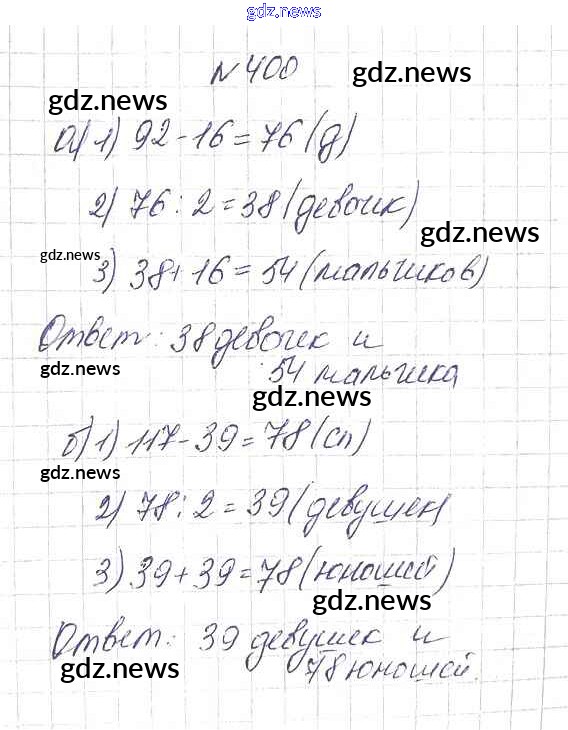 gdz.news
№ 400
gdz.news
gdz.news
а) 1) 92 - 16 = 76 (д)
2) 76 : 2 = 38 (девочек)
gdz.news
gdz.news
3) 38 + 16 = 54 (мальчиков)
Ответ: 38 девочек и
gdz.news
54 мальчика
gdz.news
б) 1) 117 - 39 = 78 (сп)
gdz.news
2) 78 : 2 = 39 (девушек)
3) 39 + 39 = 78 (юношей)
gdz.news
Ответ: 39 девушек и
gdz.news
78 юношей.